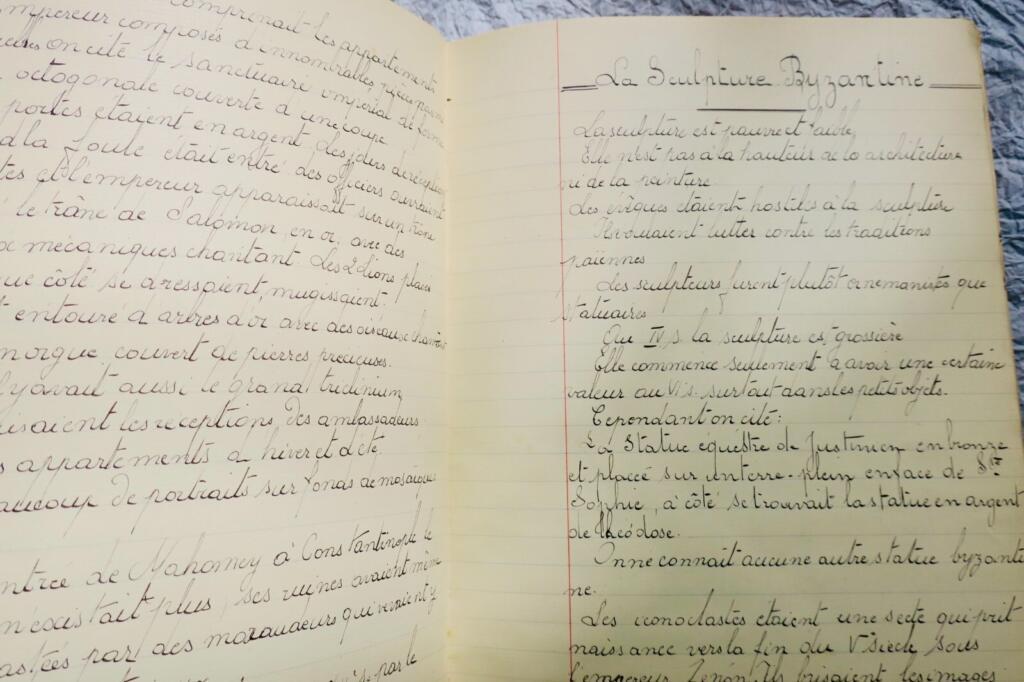 comprenait les appartements
empereur composés d'innombrables pièces parmi
on cité le sanctuaire impérial de forme
octogonale couverte d'une coupe
portes étaient en argent, les jours de réception
d la foule était entré des officiers ouvraient
tes et l'empereur apparaissait sur un trône
le trâne de Salomon, en or, avec des
x mécaniques chantant. Les 2 lions placés
que côté se dressaient, mugissaient
t entouré d arbres d'or avec des oiseaux
couvert de pierres précieuses.
l y avait aussi le grand triclinium
aisaient les réceptions des ambassadeurs
s appartements d'hiver et d'été
aucoup de portraits sur fonds de mosaïques
ntrée de Mahomey à Constantinople le
n'existait plus, ses ruines avaient même
astées par des maraudeurs qui venaient y
par le
La Sculpture Byzantine
La sculpture est pauvre et faible
Elle n'est pas à la hauteur de la architecture
ni de la peinture
Les évêques étaient hostiles à la sculpture
Ils voulaient lutter contre les traditions
païennes
Les sculpteurs furent plutôt ornemanistes que
statuaires
Au IV s. la sculpture est grossière
Elle commence seulement à avoir une certaine
valeur au VI s. surtout dans les petits objets.
Cependant on cité:
La Statue équestre de Justinien en bronze
et placé sur un terre-plein en face de Ste
Sophie, à côté se trouvait la statue en argent
de Théodose.
On ne connaît aucune autre statue byzanti
ne.
Les iconoclastes étaient une secte qui prit
naissance vers la fin du V siècle sous
l'empereur Zénon. Ils brisaient les images